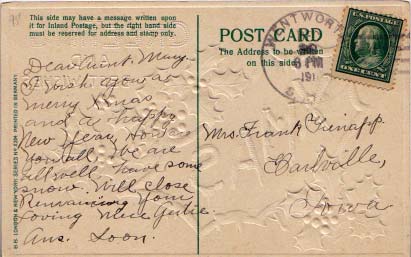 This side may have a message written upon
it for Inland Postage, but the right hand side
must be reserved for address and stamp only.
POST CARD
The Address to be written
on this side.
WENTWORTH
191
U.S. POSTAGE
ONE CENT
Dear Aunt Mary.
I wish you a
merry Xmas
and a happy
New Year, How are
you all. We are
all well, have some
snow. Will close
Remaining Your
loving Niece
Ans. Soon.
Mrs. Frank
Earlville,
Iowa
PRINTED IN GERMANY.